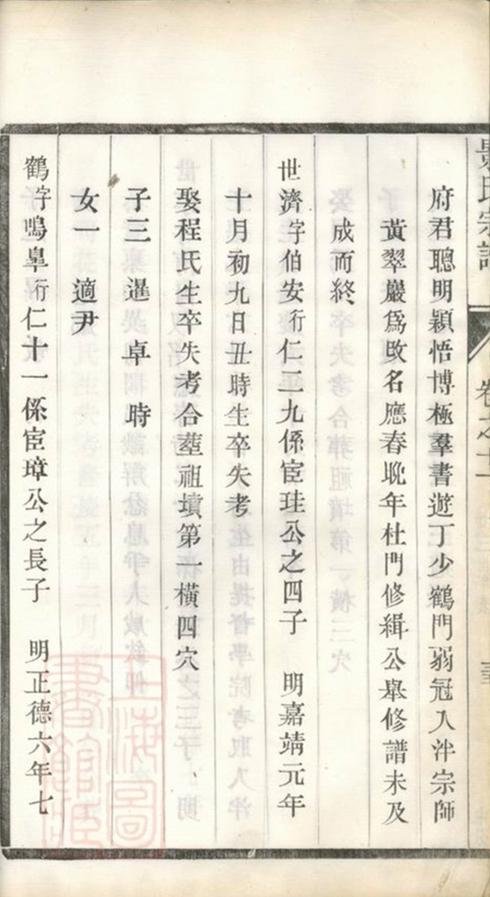 府君聰明穎悟博極羣書遊丁少鶴門弱冠入泮宗師
黃翠巖爲改名應春晚年杜門修緝公舉修譜未及
成而終
世濟字伯安行仁三九係宦珪公之四子 明嘉靖元年
十月初九日丑時生卒失考
娶程氏生卒失考合塟祖墳第一橫四穴
子三 暹 卓 時
女一 適尹
鶴字鳴臯行仁十一係宦璋公之長子 明正德六年七
氏宗譜
卷之二
上海圖書館藏